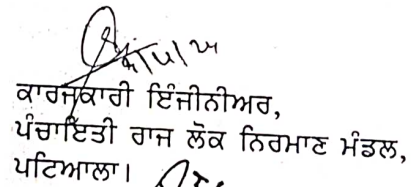 ਕਾਰਜਕਾਰੀ ਇੰਜੀਨੀਅਰ,
ਪੰਚਾਇਤੀ ਰਾਜ ਲੋਕ ਨਿਰਮਾਣ ਮੰਡਲ,
ਪਟਿਆਲਾ।